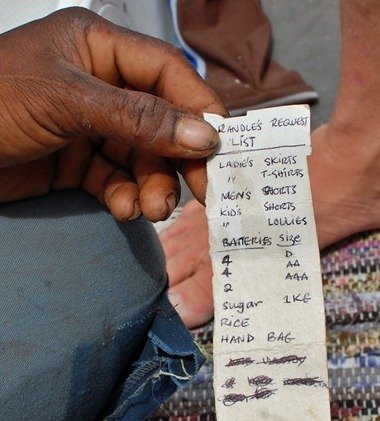 RANDLE'S REQUEST
LIST
LADIE'S SKIRTS
" T-SHIRTS
MEN'S SHORTS
KID'S SHORTS
" LOLLIES
BATTERIES SIZE
4 D
4 AA
2 AAA
sugar 1KG
RICE
HAND BAG